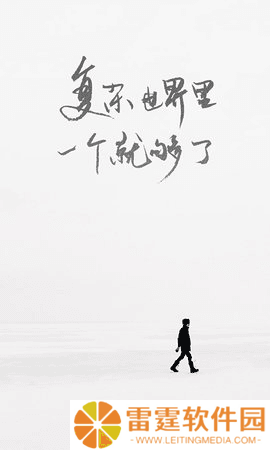 复杂世界里
一个就够了
雷霆软件园
WWW.LEITINGMEDIA.COM